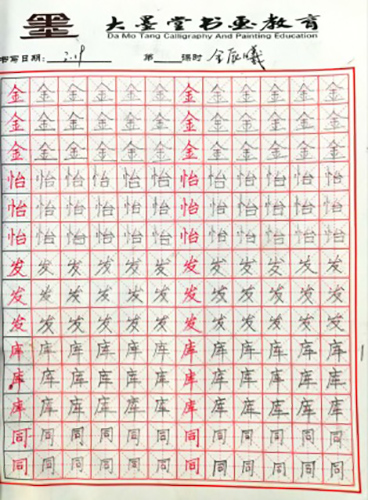 墨 大墨堂书画教育
Da Mo Tang Calligraphy And Painting Education
书写日期: 2.19 第 课时 辰曦
金金金金金金金金金金金金
金金金金金金金金金金金金
金金金金金金金金金金金金
怡怡怡怡怡怡怡怡怡怡怡怡
怡怡怡怡怡怡怡怡怡怡怡怡
怡怡怡怡怡怡怡怡怡怡怡怡
发发发发发发发发发发发发
发发发发发发发发发发发发
发发发发发发发发发发发发
库库库库库库库库库库库库
库库库库库库库库库库库库
库库库库库库库库库库库库
同同同同同同同同同同同同
同同同同同同同同同同同同